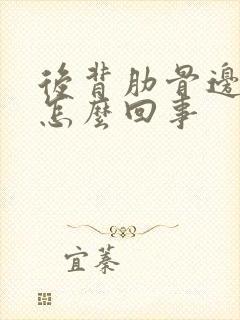 後背肋骨邊
怎麼回事
宜蓁